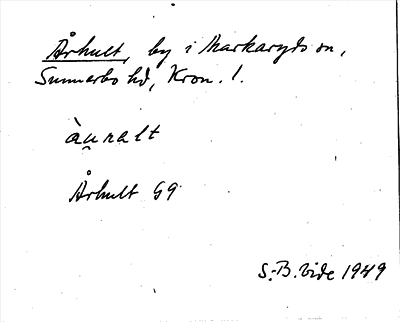 Århult, by i Markaryds sn,
Sunnerbo hd, Kron. l.
àu̯ralt
Århult G9
S.-B. Vide 1949